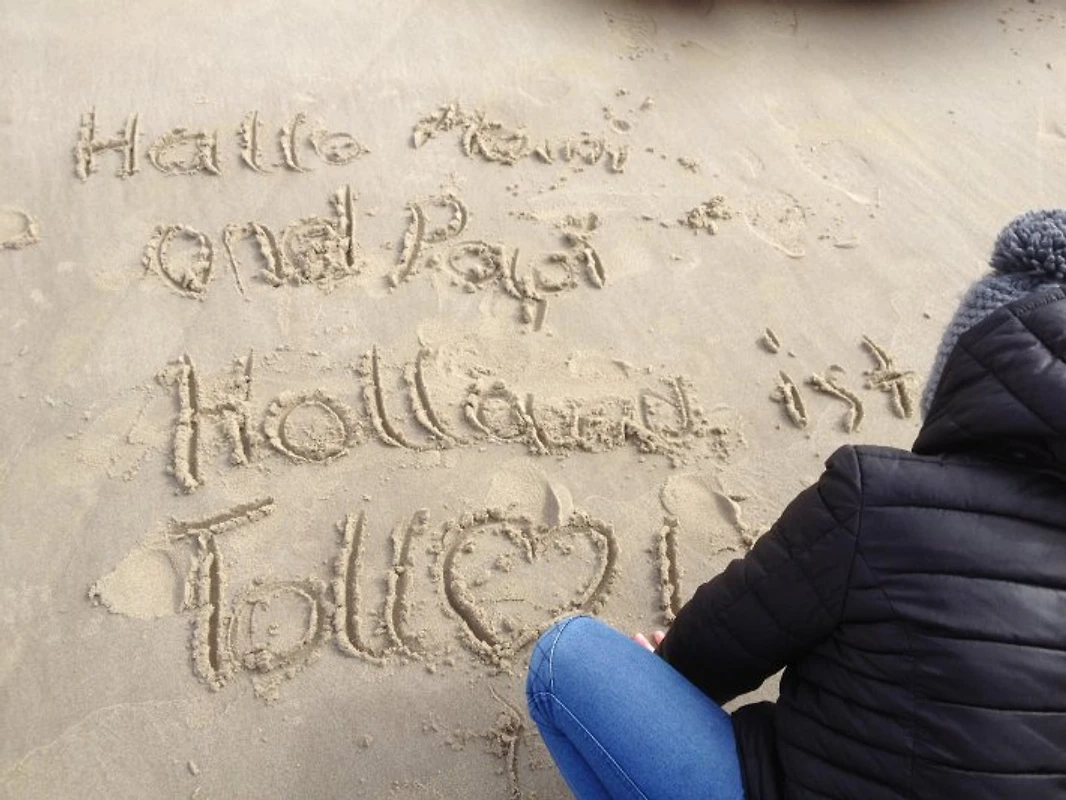 Hallo Mami
ond Papi
Holland ist
Toll ♡ i